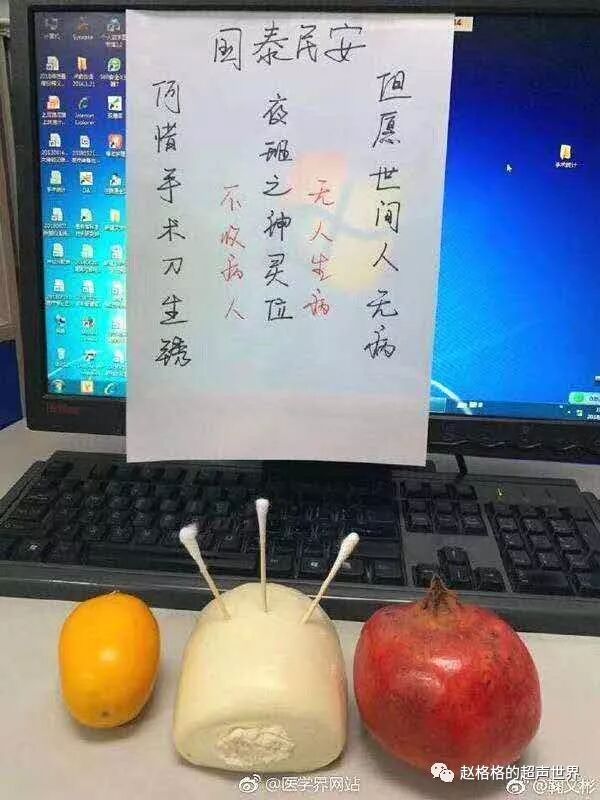 国泰民安
但愿世间人无病
无人生病
夜班之神灵位
不收病人
何惜手术刀生锈
手术统计
Internet Explorer
手术统计
@医学界网站
赵格格的超声世界